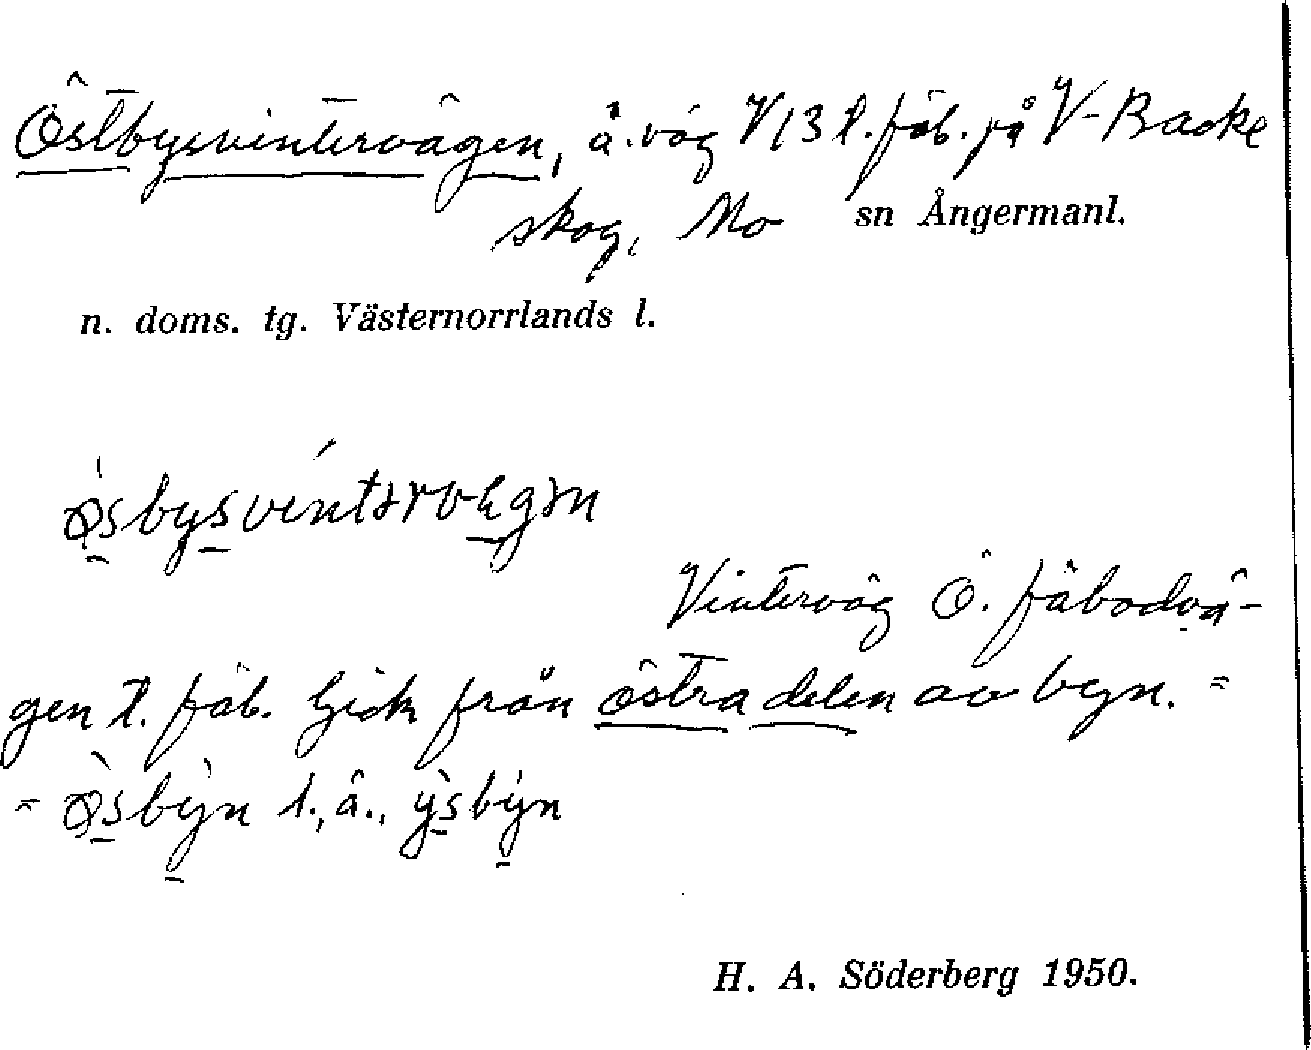 Östbysvintervägen, ä. väg V13 t. fäb. på V-Backe
skog, Mo sn Ångermanl.
n. doms. tg. Västernorrlands l.
Vinterväg Ö. fäbodvä-
gen t. fäb. Gick från östra delen av byn. =
= y̆sbyn
H. A. Söderberg 1950.